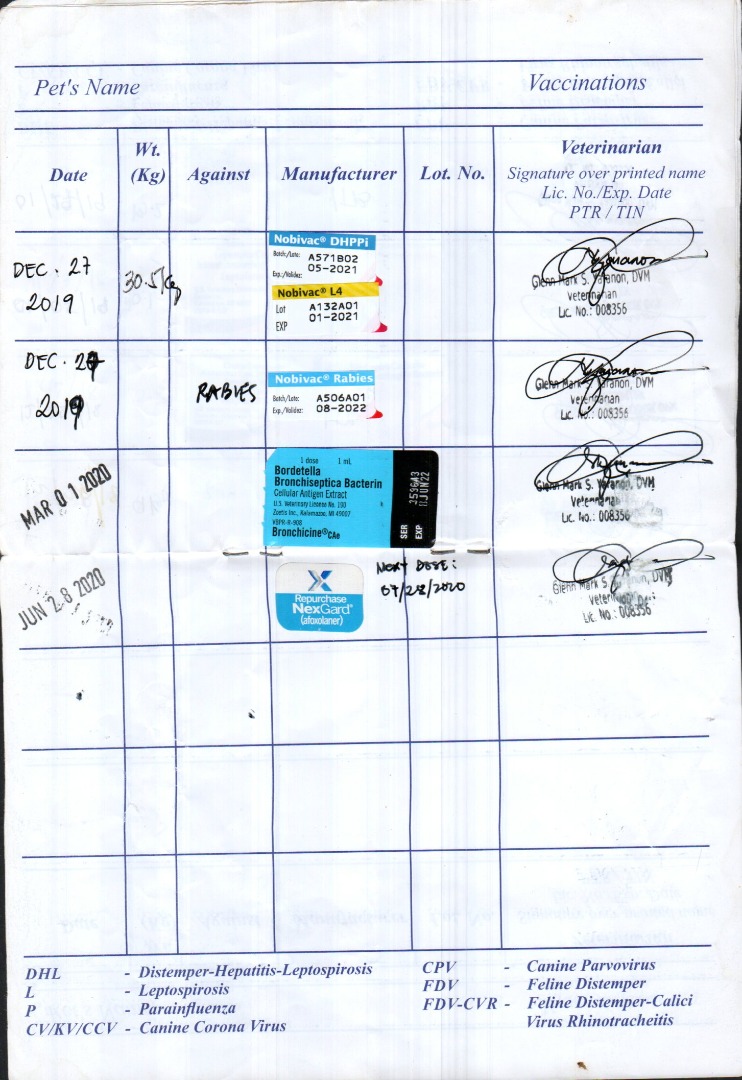 Pet's Name Vaccinations
Date Wt. (Kg) Against Manufacturer Lot. No. Veterinarian
Signature over printed name
Lic. No./Exp. Date
PTR / TIN
DEC. 27
2019
30.5 kg
Nobivac® DHPPi
Batch/Lote: A571B02
Exp./Validez: 05-2021
Nobivac® L4
Lot A132A01
EXP 01-2021
Glenn Mark S. Yaranon, DVM
Veterinarian
Lic. No.: 008356
DEC. 27
2019
RABIES
Nobivac® Rabies
Batch/Lote: A506A01
Exp./Validez: 08-2022
Glenn Mark S. Yaranon, DVM
Veterinarian
Lic. No.: 008356
MAR 01 2020
1 dose 1 mL
Bordetella
Bronchiseptica Bacterin
Cellular Antigen Extract
U.S. Veterinary License No. 190
Zoetis Inc., Kalamazoo, MI 49007
VBPR-R-908
Bronchicine® CAe
SER
EXP 11JUN22
Glenn Mark S. Yaranon, DVM
Veterinarian
Lic. No.: 008356
JUN 28 2020
Repurchase
NexGard®
(afoxolaner)
NEXT DOSE:
07/28/2020
Glenn Mark S. Yaranon, DVM
Veterinarian
Lic. No.: 008356
DHL - Distemper-Hepatitis-Leptospirosis
L - Leptospirosis
P - Parainfluenza
CV/KV/CCV - Canine Corona Virus
CPV - Canine Parvovirus
FDV - Feline Distemper
FDV-CVR - Feline Distemper-Calici
Virus Rhinotracheitis